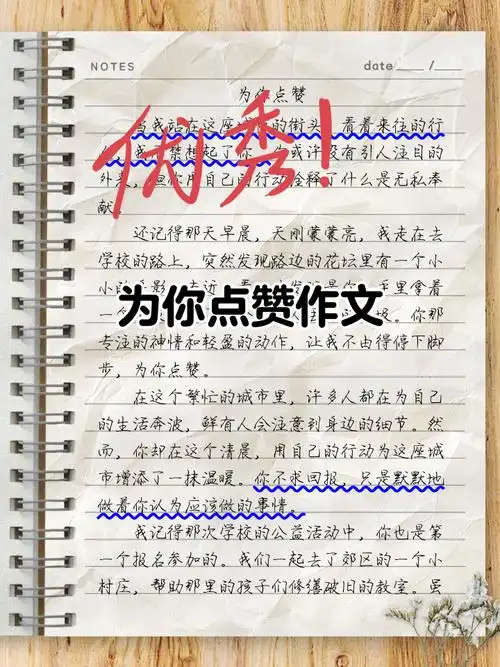 NOTES
date____/____
为你点赞
当我站在这座 的街头，看着来往的行
禁想起了你 或许没有引人注目的
外表，但你用自己的行动诠释了什么是无私奉
献。
优秀！
还记得那天早晨，天刚蒙蒙亮，我走在去
学校的路上，突然发现路边的花坛里有一个小
小的 影 近 是你 手里拿着
为你点赞作文
一个 圾。你那
专注的神情和轻盈的动作，让我不由得停下脚
步，为你点赞。
在这个繁忙的城市里，许多人都在为自己
的生活奔波，鲜有人会注意到身边的细节。然
而，你却在这个清晨，用自己的行动为这座城
市增添了一抹温暖。你不求回报，只是默默地
做着你认为应该做的事情。
我记得那次学校的公益活动中，你也是第
一个报名参加的。我们一起去了郊区的一个小
村庄，帮助那里的孩子们修缮破旧的教室。虽